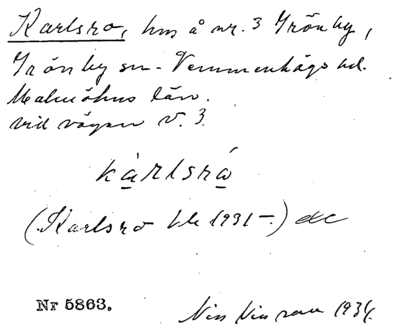 Karlsro, hus å nr. 3 Grönby,
Grönby sn. Vemmenhögs hd.
Malmöhus län.
vid vägen v. 3.
kàrlsrá
(Karlsro bl. 1931–)
Nr 5863.
1934.